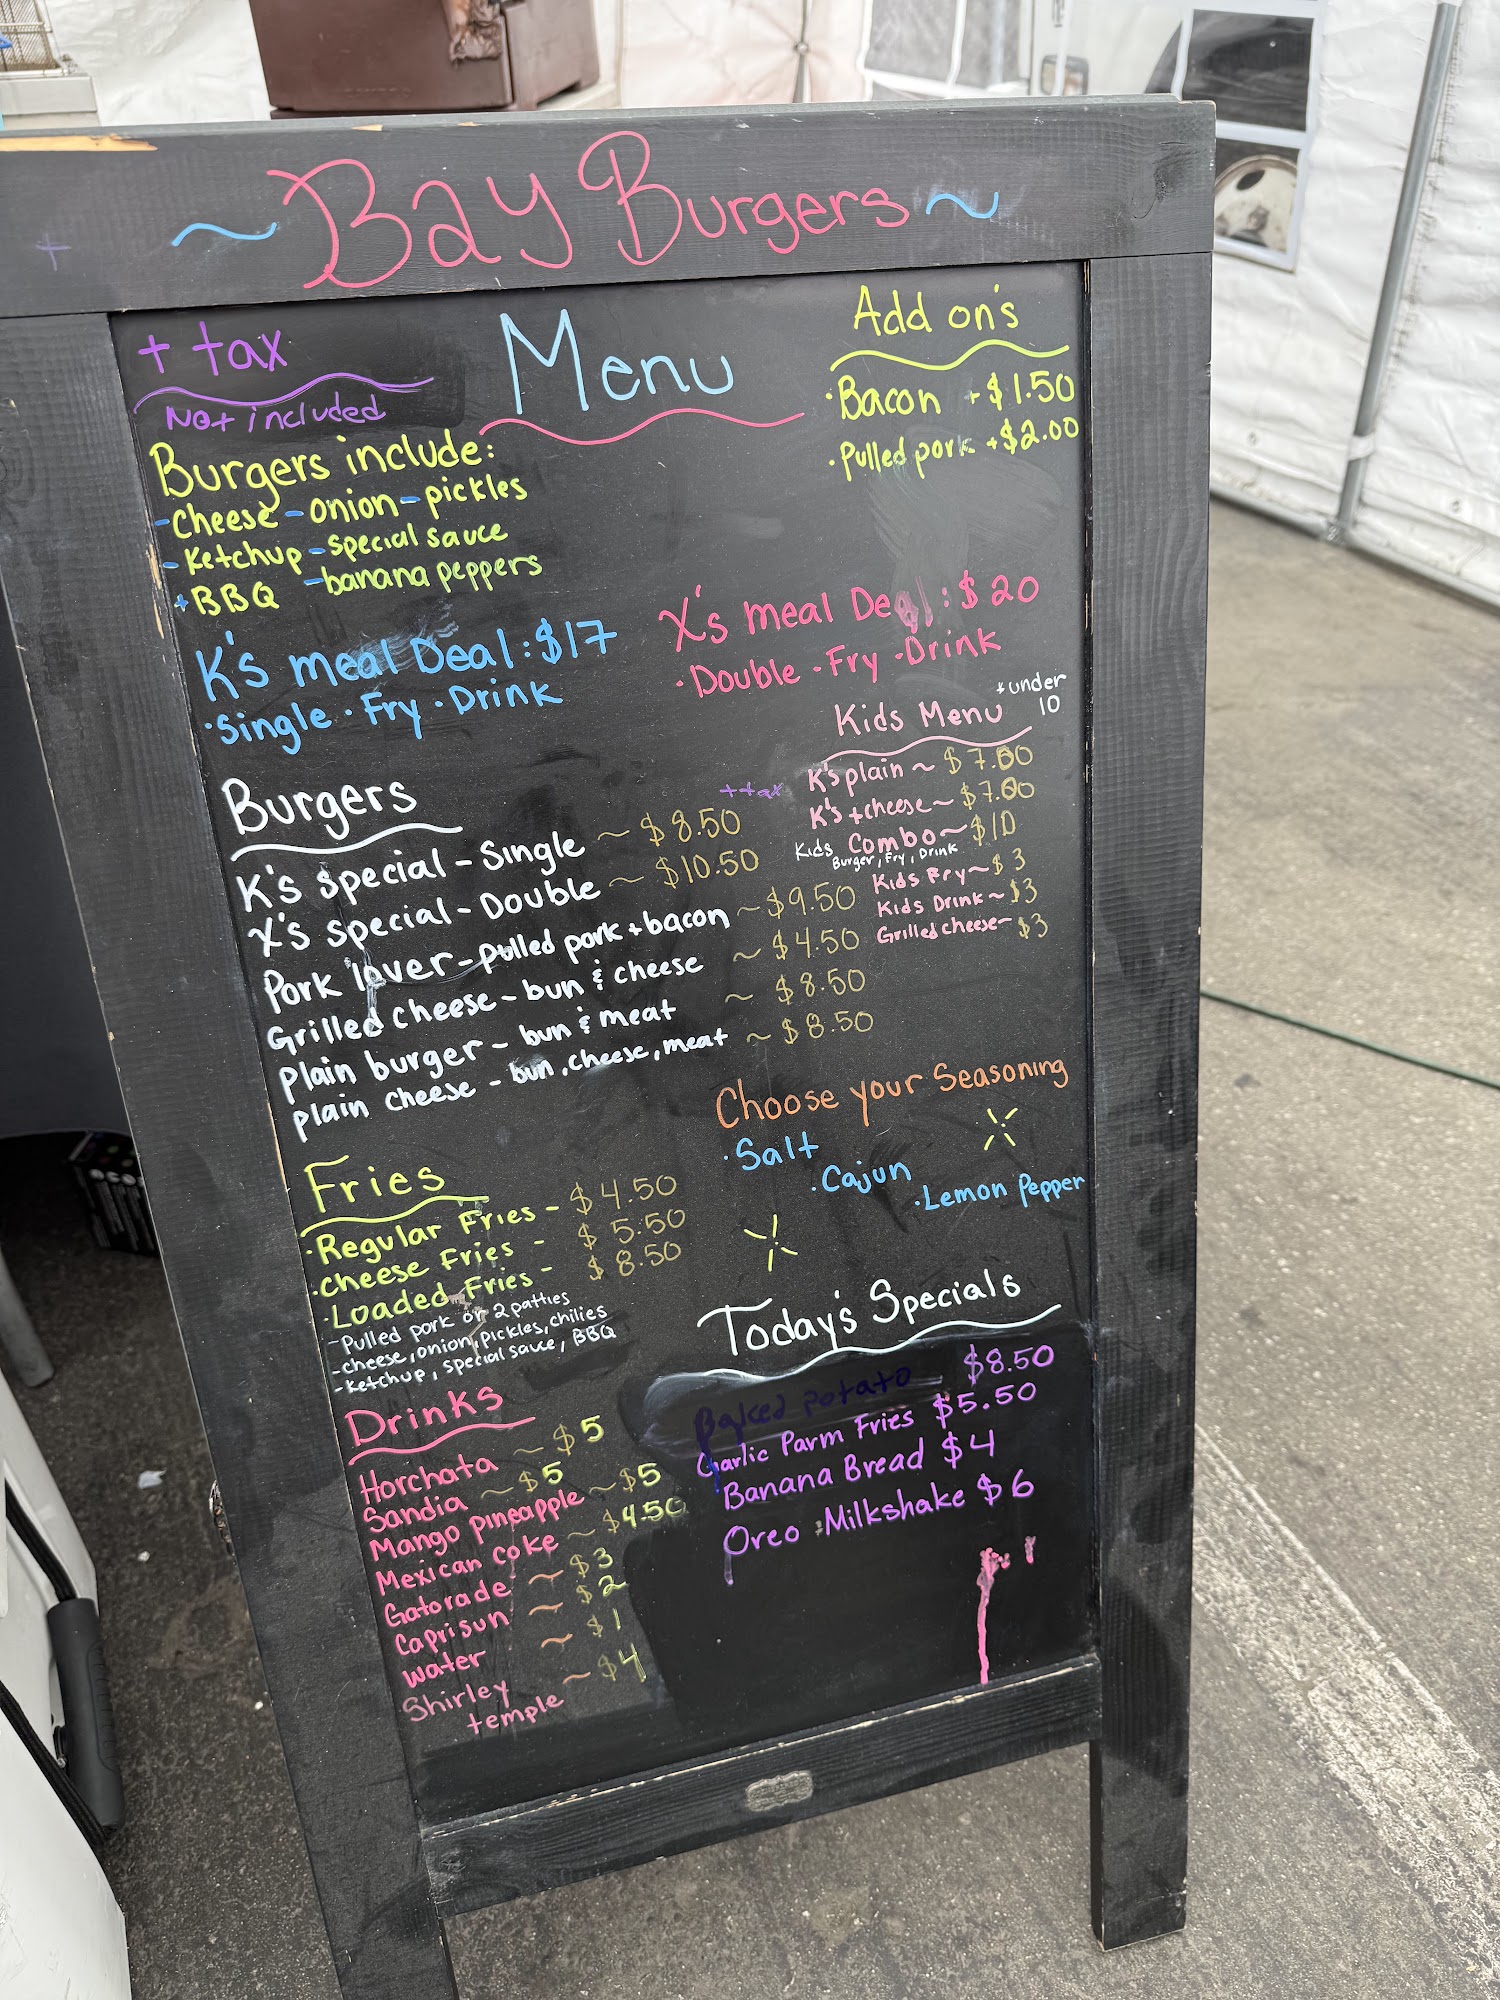 ~ Bay Burgers ~
+ tax
Not included
Menu
Add on's
·Bacon +$1.50
·Pulled pork +$2.00
Burgers include:
-Cheese -onion -pickles
-Ketchup -special sauce
+BBQ -banana peppers
K's meal Deal: $17
·Single ·Fry ·Drink
X's meal Deal: $20
·Double ·Fry ·Drink
Burgers
++tax
K's special - Single ~ $8.50
X's special - Double ~ $10.50
Pork lover - pulled pork + bacon ~ $9.50
Grilled cheese - bun & cheese ~ $4.50
Plain burger - bun & meat ~ $8.50
Plain cheese - bun, cheese, meat ~ $8.50
Kids Menu + under 10
K's plain ~ $7.00
K's + cheese ~ $7.00
Kids Combo ~ $10
Burger, Fry, Drink
Kids Fry ~ $3
Kids Drink ~ $3
Grilled cheese ~ $3
Choose your Seasoning
·Salt
·Cajun
·Lemon Pepper
Fries
·Regular Fries - $4.50
·Cheese Fries - $5.50
·Loaded Fries - $8.50
-Pulled pork or 2 patties
-cheese, onion, pickles, chilies
-Ketchup, special sauce, BBQ
Drinks
Horchata ~ $5
Sandia ~ $5
Mango Pineapple ~ $5
Mexican Coke ~ $4.50
Gatorade ~ $3
Caprisun ~ $2
Water ~ $1
Shirley
temple ~ $4
Today's Specials
Baked potato $8.50
Garlic Parm Fries $5.50
Banana Bread $4
Oreo Milkshake $6